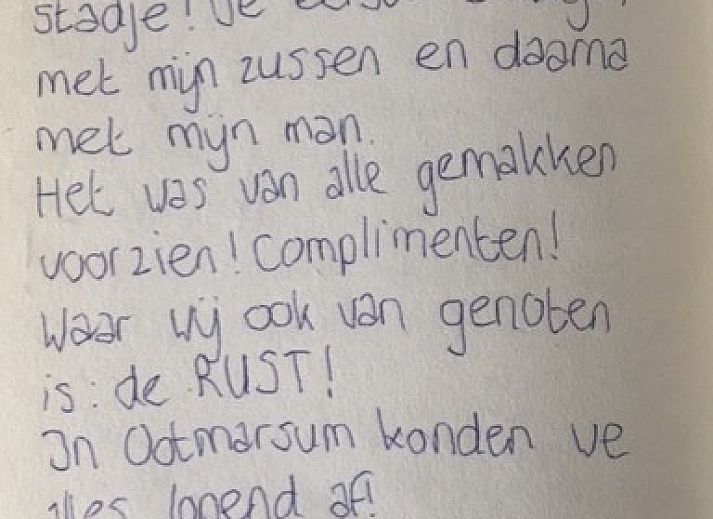 stadje! De
met mijn zussen en daarna
met mijn man.
Het was van alle gemakken
voorzien! Complimenten!
Waar wij ook van genoten
is: de RUST!
In Ootmarsum konden we
alles lopend af!